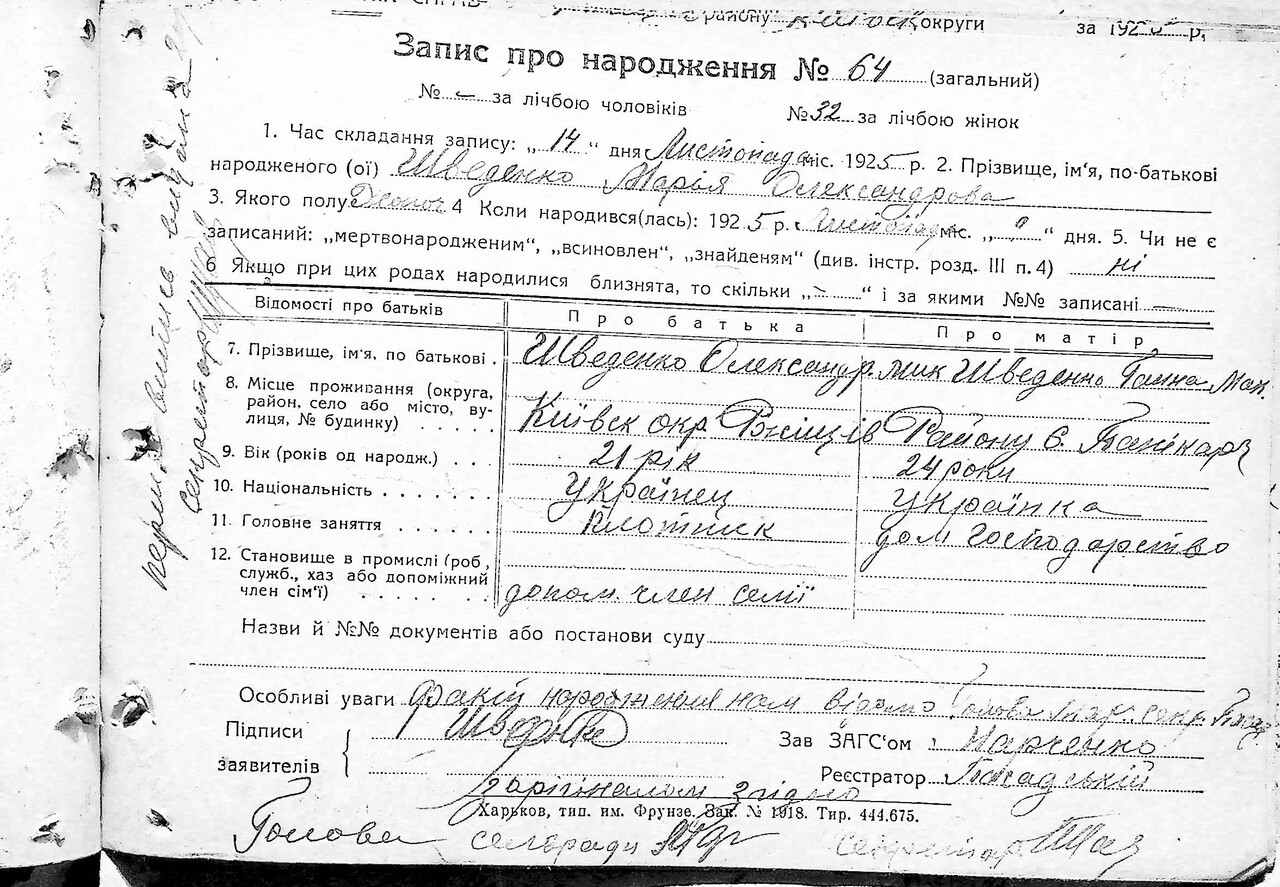 району округи за 192 р.
Запис про народження № 64 (загальний)
№ – за лічбою чоловіків №32 за лічбою жінок
1. Час складання запису: „ 14 “ дня Листопада міс. 1925 р. 2. Прізвище, ім'я, по-батькові
народженого (ої) Шведенко Марія Олександрова
3. Якого полу 4 Коли народився(лась): 1925 р. Листопад міс. „ “ дня. 5. Чи не є
записаний: „мертвонародженим“, „всиновлен“, „знайденям“ (див. інстр. розд. III п. 4) ні
6 Якщо при цих родах народилися близнята, то скільки „ – “ і за якими №№ записані —
Відомості про батьків Про батька Про матір
7. Прізвище, ім'я, по батькові . Шведенко Олександр Мик Шведенко Ганна Мак.
8. Місце проживання (округа,
район, село або місто, ву-
лиця, № будинку) Київск окр. Ржищів Району С.
9. Вік (років од народж.) . . . 21 рік 24 роки
10. Національність . . . . . . . українец українка
11. Головне заняття . . . . . . Плотник дом господарство
12. Становище в промислі (роб,
служб., хаз або допоміжний
член сім'ї) . . . . . . . . допом. член семії
Назви й №№ документів або постанови суду
Особливі уваги Факт народження нам відомо Голова
Підписи Шведенко Зав ЗАГС'ом Марченко
заявителів Реєстратор
З оригіналом згідно
Харьков, тип. им. Фрунзе. Зак. № 1918. Тир. 444.675.
Голова сельради секретар